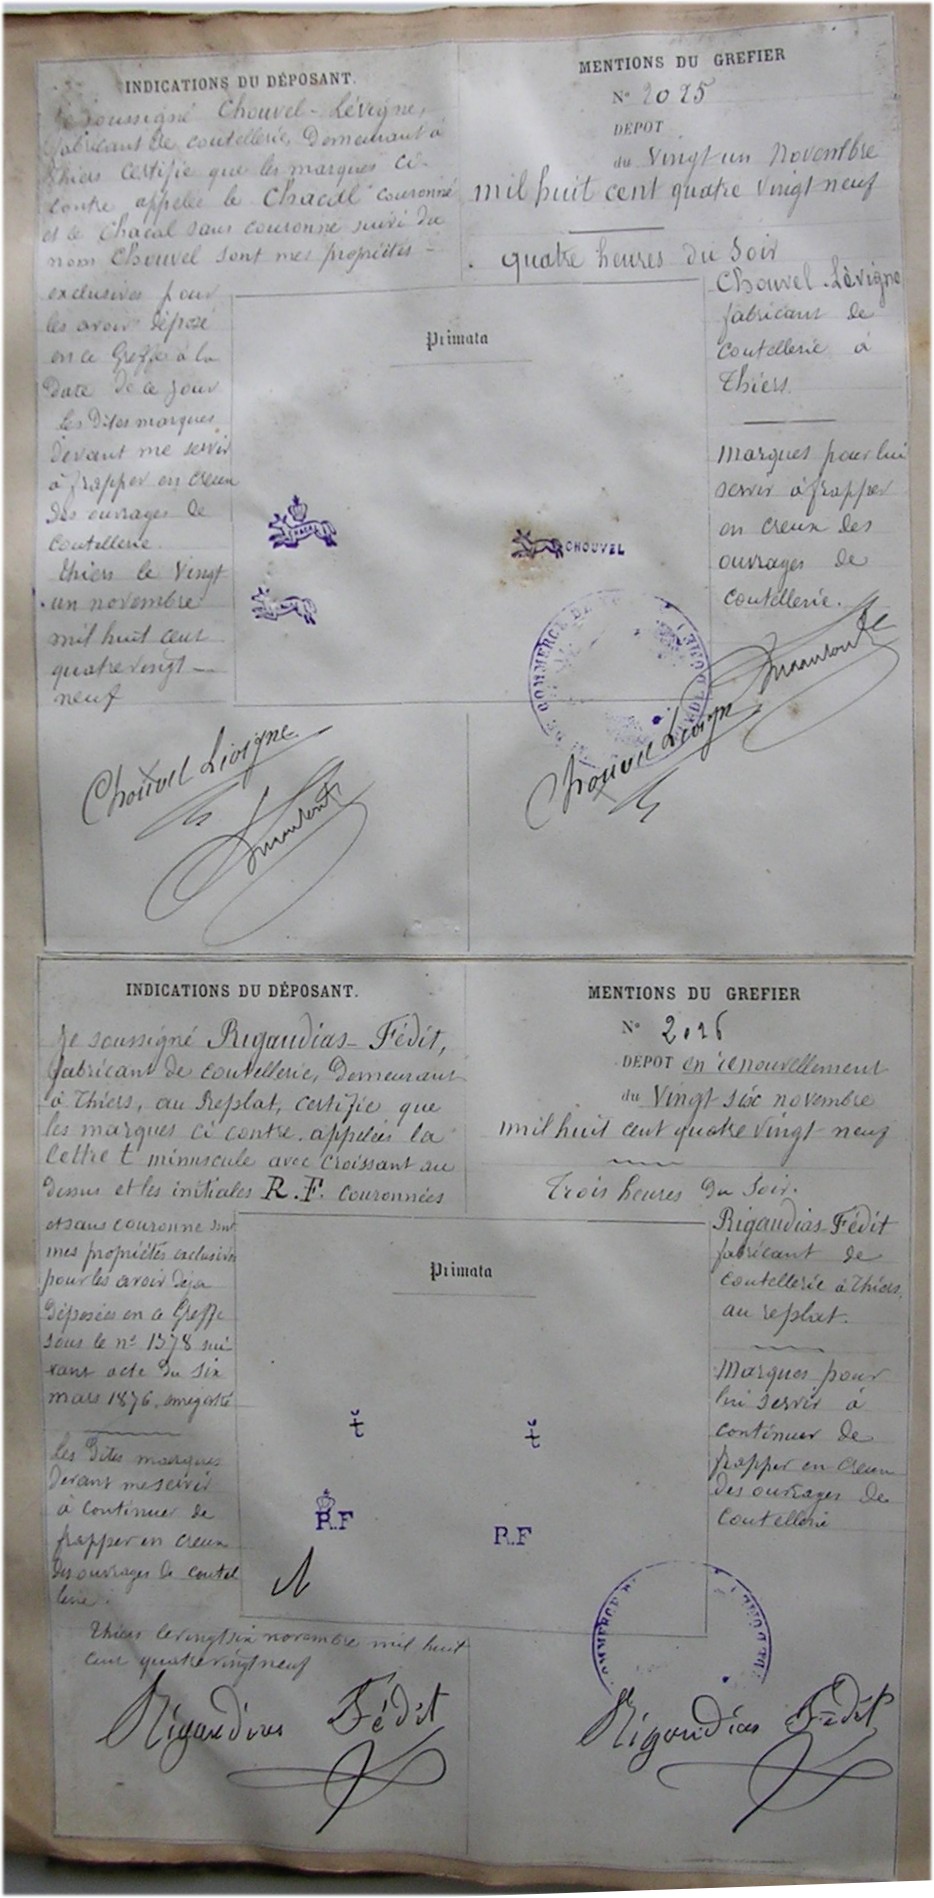 INDICATIONS DU DÉPOSANT.
Je soussigné Chouvel-Lévigne,
fabricant de coutellerie, Demeurant à
Thiers certifie que les marques ci-
contre appelée le Chacal couronné
et le Chacal sans couronne suivi du
nom Chouvel sont mes propriétés
exclusives pour
les avoir déposé
en ce Greffe à la
Date de ce jour
les Dites marques
Devant me servir
à frapper en creux
des ouvrages de
Coutellerie.
Thiers le Vingt
un novembre
mil huit cent
quatre vingt
neuf
MENTIONS DU GREFIER
N° 2025
DÉPOT
du Vingt un Novembre
mil huit cent quatre vingt neuf
quatre heures du Soir
Chouvel-Lévigne
fabricant de
coutellerie à
Thiers.
Marques pour lui
servir à frapper
en creux des
ouvrages de
Coutellerie.
Primata
CHACAL
CHOUVEL
COMMERCE DE
PUY DE DOME
Chouvel Lévigne
Chouvel Lévigne
INDICATIONS DU DÉPOSANT.
Je soussigné Rigaudias-Fédit,
fabricant de coutellerie, Demeurant
à Thiers, au Replat, certifie que
les marques ci contre appelées la
lettre t minuscule avec croissant au
dessus et les initiales R.F. couronnées
et sans couronne sont
mes propriétés exclusives
pour les avoir Déja
Déposées en ce Greffe
sous le n° 1378 sui
vant acte du six
mars 1876, enregistré
Les Dites marques
Devant me servir
à continuer de
frapper en creux
des ouvrages de coutel
lerie.
Thiers le vingt six novembre mil huit
cent quatre vingt neuf
MENTIONS DU GREFIER
N° 2026
DÉPOT en renouvellement
du Vingt six novembre
mil huit cent quatre vingt neuf
Trois heures du Soir.
Rigaudias-Fédit
fabricant de
coutellerie à Thiers,
au replat.
Marques pour
lui servir à
continuer de
frapper en creux
des ouvrages de
Coutellerie
Primata
t
t
R.F
R.F
COMMERCE
PUY DE DOME
Rigaudias Fédit
Rigaudias Fédit